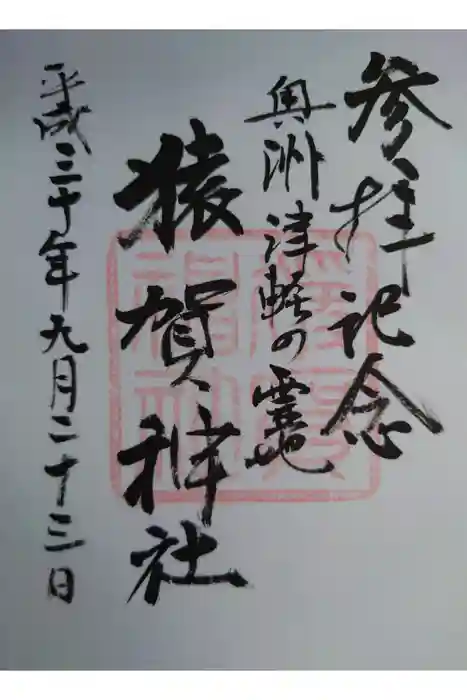 参拝記念
奥洲津軽の霊地
猿賀神社
平成三十年九月二十三日
猿賀神社